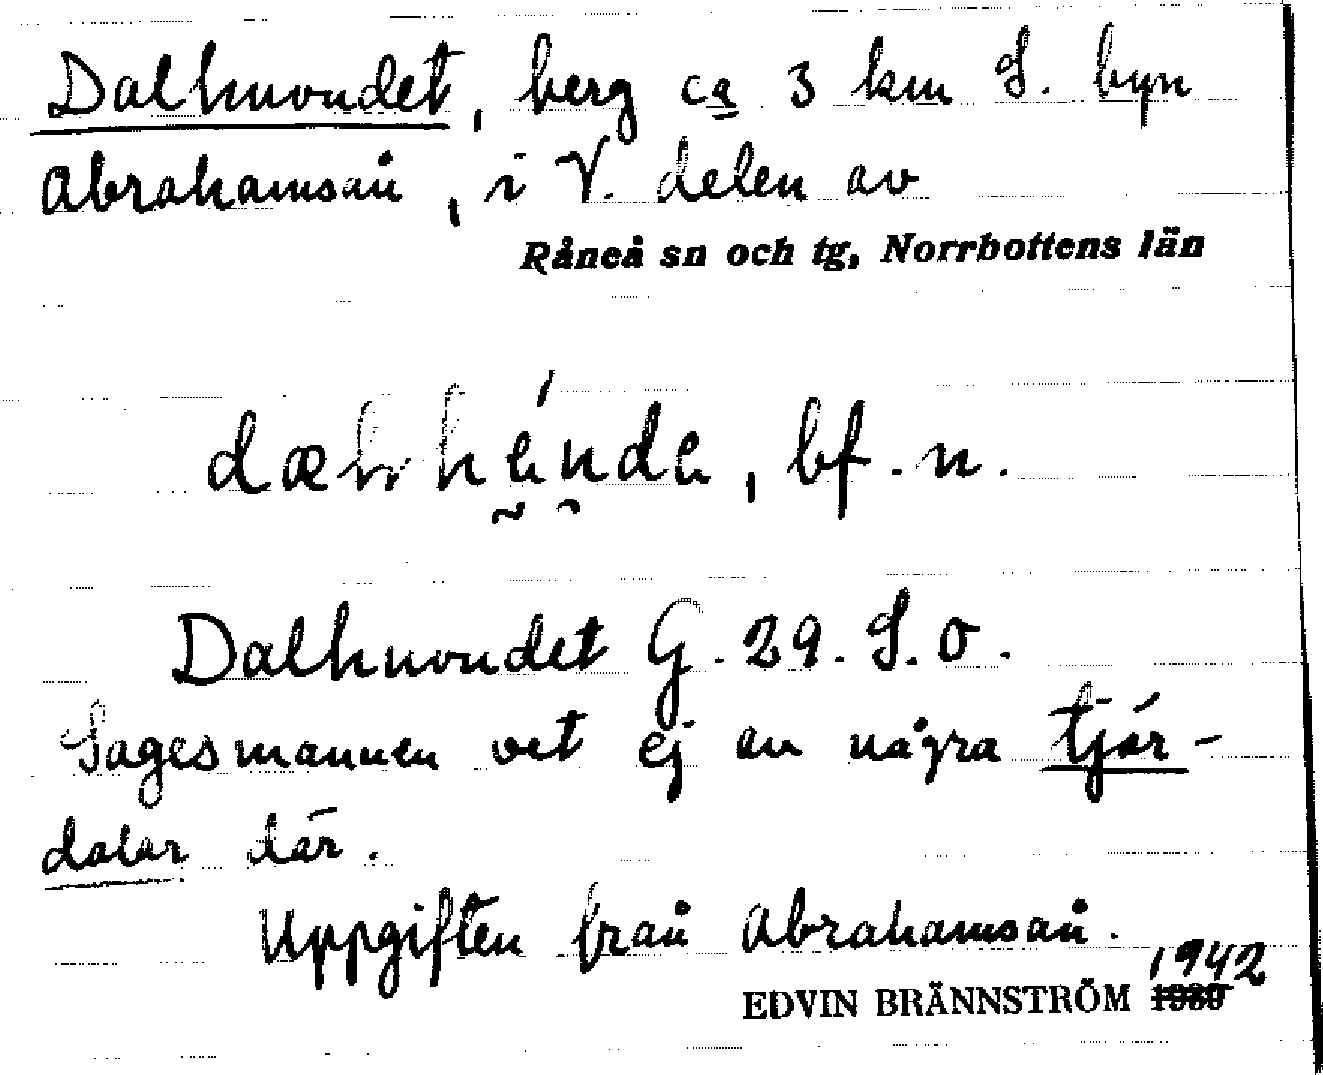 Dalhuvudet, berg ca 3 km S. byn
Abrahamsån, i V. delen av
Råneå sn och tg, Norrbottens län
bf. n.
Dalhuvudet G. 29. S. O.
Sagesmannen vet ej av några tjär-
dalar där.
Uppgiften från Abrahamsån.
1942
EDVIN BRÄNNSTRÖM 1930